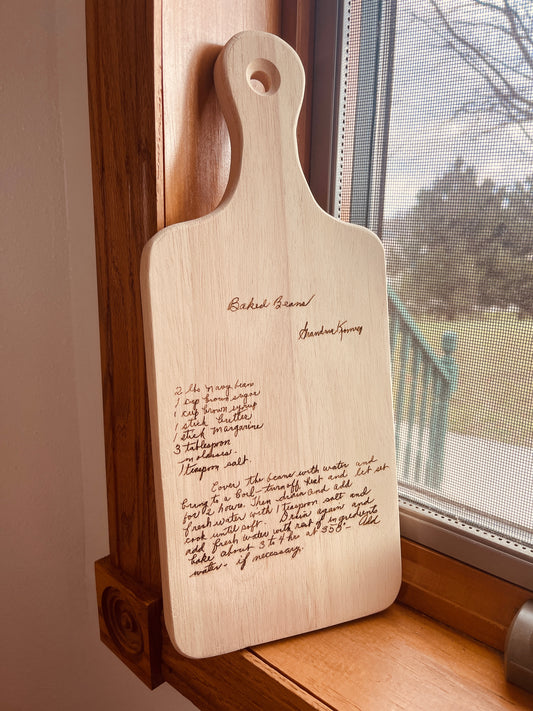 Baked Beans
Grandma Romney
2 lbs navy bean
1 cup brown sugar
1 cup brown syrup
1 stick butter
1 stick margarine
3 tablespoon
molasses
1 teaspoon salt.
Cover the beans with water and
bring to a boil - turn off heat and let set
for 2 hours. Then drain and add
fresh water with 1 teaspoon salt and
cook until soft. Drain again and
add fresh water with rest of ingredients
bake about 3 to 4 hr at 350° - Add
water - if necessary.